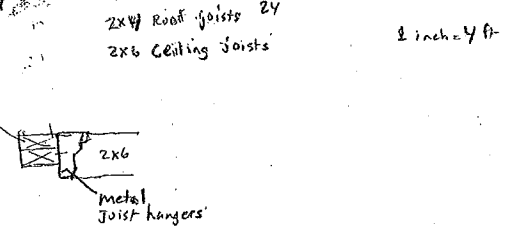 2x4 Roof joists 24
2x6 Ceiling Joists
1 inch = 4 ft
2x6
metal
Joist hangers